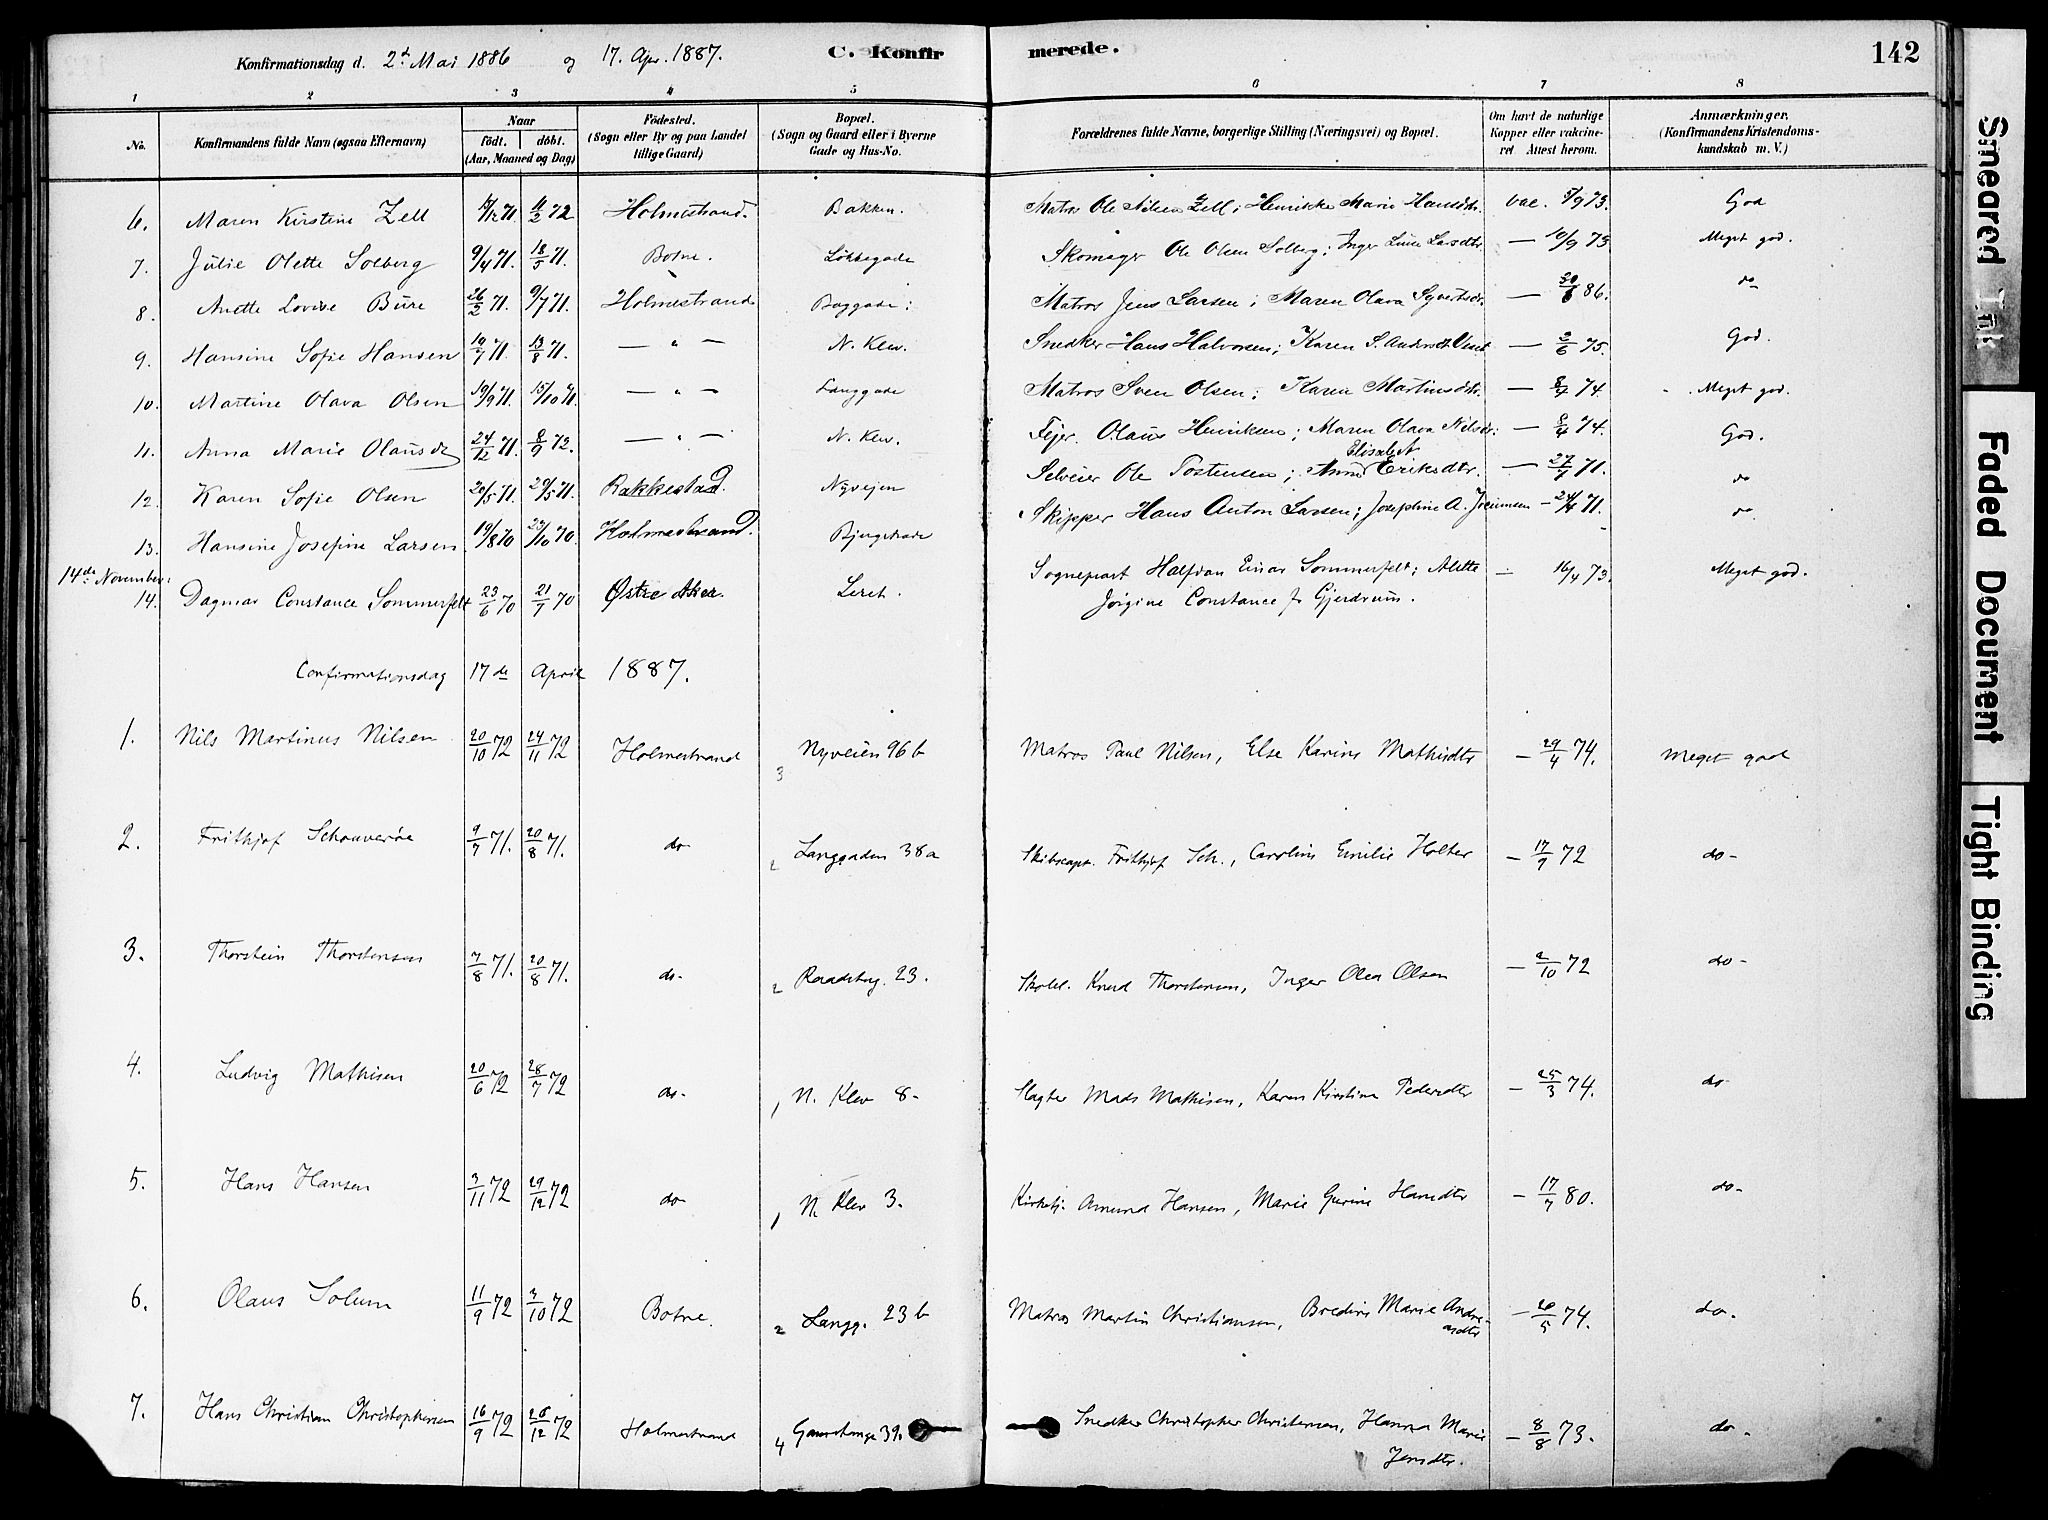 Konfirmationsdag d. 2d Mai 1886 og 17. Apr. 1887. C. Konfirmerede. 142
1 2 3 4 5 6 7 8
No. Konfirmandens fulde Navn (ogsaa Efternavn) Naar født. døbt. (Aar, Maaned og Dag) Fødested. (Sogn eller By og paa Landet tillige Gaard) Bopæl. (Sogn og Gaard eller i Byerne Gade og Hus-No. Forældrenes fulde Navne, borgerlige Stilling (Næringsvei) og Bopæl. Om havt de naturlige Kopper eller vakcineret Attest herom. Anmærkninger. (Konfirmandens Kristendomskundskab m. V.)
6. Maren Kirstine Zell 11/2 72 Holmestrand. Bakken. Matros Ole Nilsen Zell; Henrikke Marie Hansdtr. vac. 5/9 73. God
7. Julie Olette Solberg 9/4 71. 18/5 71. Botne. Løkkegade Skomager Ole Olsen Solberg; Inger Larsdtr — 10/9 73 Meget god.
8. Anette Lovise Bure 26/2 71. 9/7 71. Holmestrand Baggade: Matros Jens Larsen; Maren Olava Syvertsdr. — 30/6 86. do
9. Hansine Sofie Hansen 19/7 71. 13/8 71. — " — N. Klev. Snedker Hans Halvorsen; Karen S. Andersdt. — 2/6 75. God.
10. Martine Olava Olsen 19/9 71. 15/10 71. — " — Langgade Matros Sven Olsen; Karen Martinsdtr. — 8/4 74. Meget god.
11. Anna Marie Olausdr 24/12 71. 8/9 72. — " — N. Klev. Fejer. Olaus Henriksen; Maren Olava Nilsdr: — 8/4 74. God.
12. Karen Sofie Olsen 20/5 71. 29/5 71. Rakkestad. Nyvejen Selveier Ole Tostensen; Anne Elisabet Eriksdtr. — 27/7 71. do
13. Hansine Josefine Larsen 19/8 70 23/10 70. Holmestrand. Bjergegade Skipper Hans Anton Larsen; Josephine A. — 24/4 71. do
14de November:
14. Dagmar Constance Sommerfelt 23/6 70 21/7 70 Østre Aker. Leret. Sogneprest Halfdan Einar Sommerfelt; Alette Jørgine Constance f. Gjerdrum. — 16/4 73. Meget god.
Confirmationsdag 17de April 1887.
1. Nils Martinus Nilsen 20/10 72 24/11 72 Holmestrand 3 Nyveien 96 b Matros Paul Nilsen, Else Karine Mathisdtr — 29/4 74. Meget god
2. Frithjof Schouverøe 9/7 71. 20/8 71. do 2 Langgaden 38a Skibscapt. Frithjof Sch., Caroline Emilie Holter — 17/9 72 do-
3. Thorstein Thorstensen 7/8 71. 20/8 71. do- 2 Raadstug. 23. Skolel. Knud Thorstensen, Inger Olea Olsen — 2/10 72 do-
4. Ludvig Mathisen 20/6 72 28/7 72 do- 1 N. Klev 8- Slagter Mads Mathisen, Karen Kirstine Pedersdtr — 25/3 74. do-
5. Hans Hansen 3/11 72 29/12 72 do 1 N. Klev 3. Kirketj. Amund Hansen, Marie Gurine Hansdtr — 17/7 80. do-
6. Olaus Solum 11/9 72 3/10 72 Botne. 2 Langg. 23 b Matros Martin Christiansen, Bredine Marie Andreasdtr — 20/5 74. do-
7. Hans Christian Christophersen 16/9 72 26/12 72 Holmestrand 4 39. Snedker Christopher Christensen, Hanna Marie Jensdtr. — 8/8 73. do-
Smeared Ink
Faded Document
Tight Binding